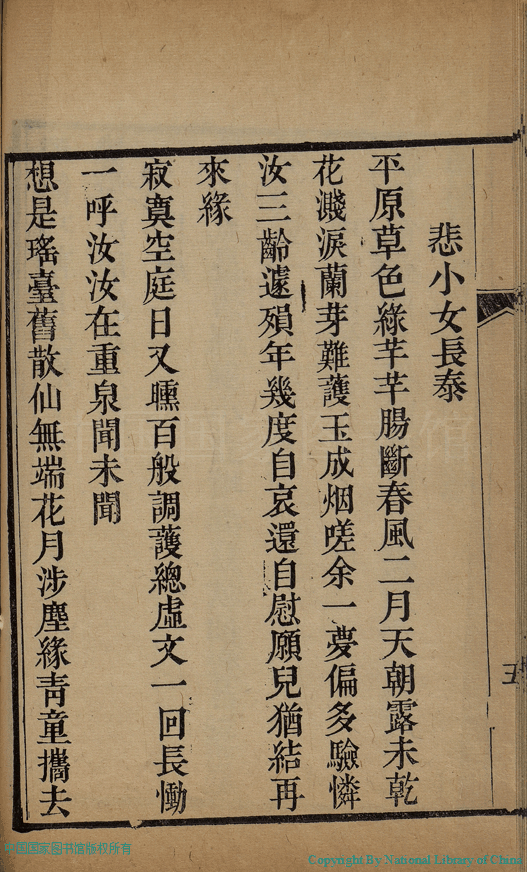 悲小女長泰
平原草色綠芊芊腸斷春風二月天朝露未乾
花濺淚蘭芽難護玉成烟嗟余一夢偏多驗憐
汝三齡遽殞年幾度自哀還自慰願兒猶結再
來緣
寂寞空庭日又曛百般調護總虛文一回長慟
一呼汝汝在重泉聞未聞
想是瑤臺舊散仙無端花月涉塵緣青童攜去
五
中国国家图书馆
国国家图书馆版权所有
Copyright By National Library of China